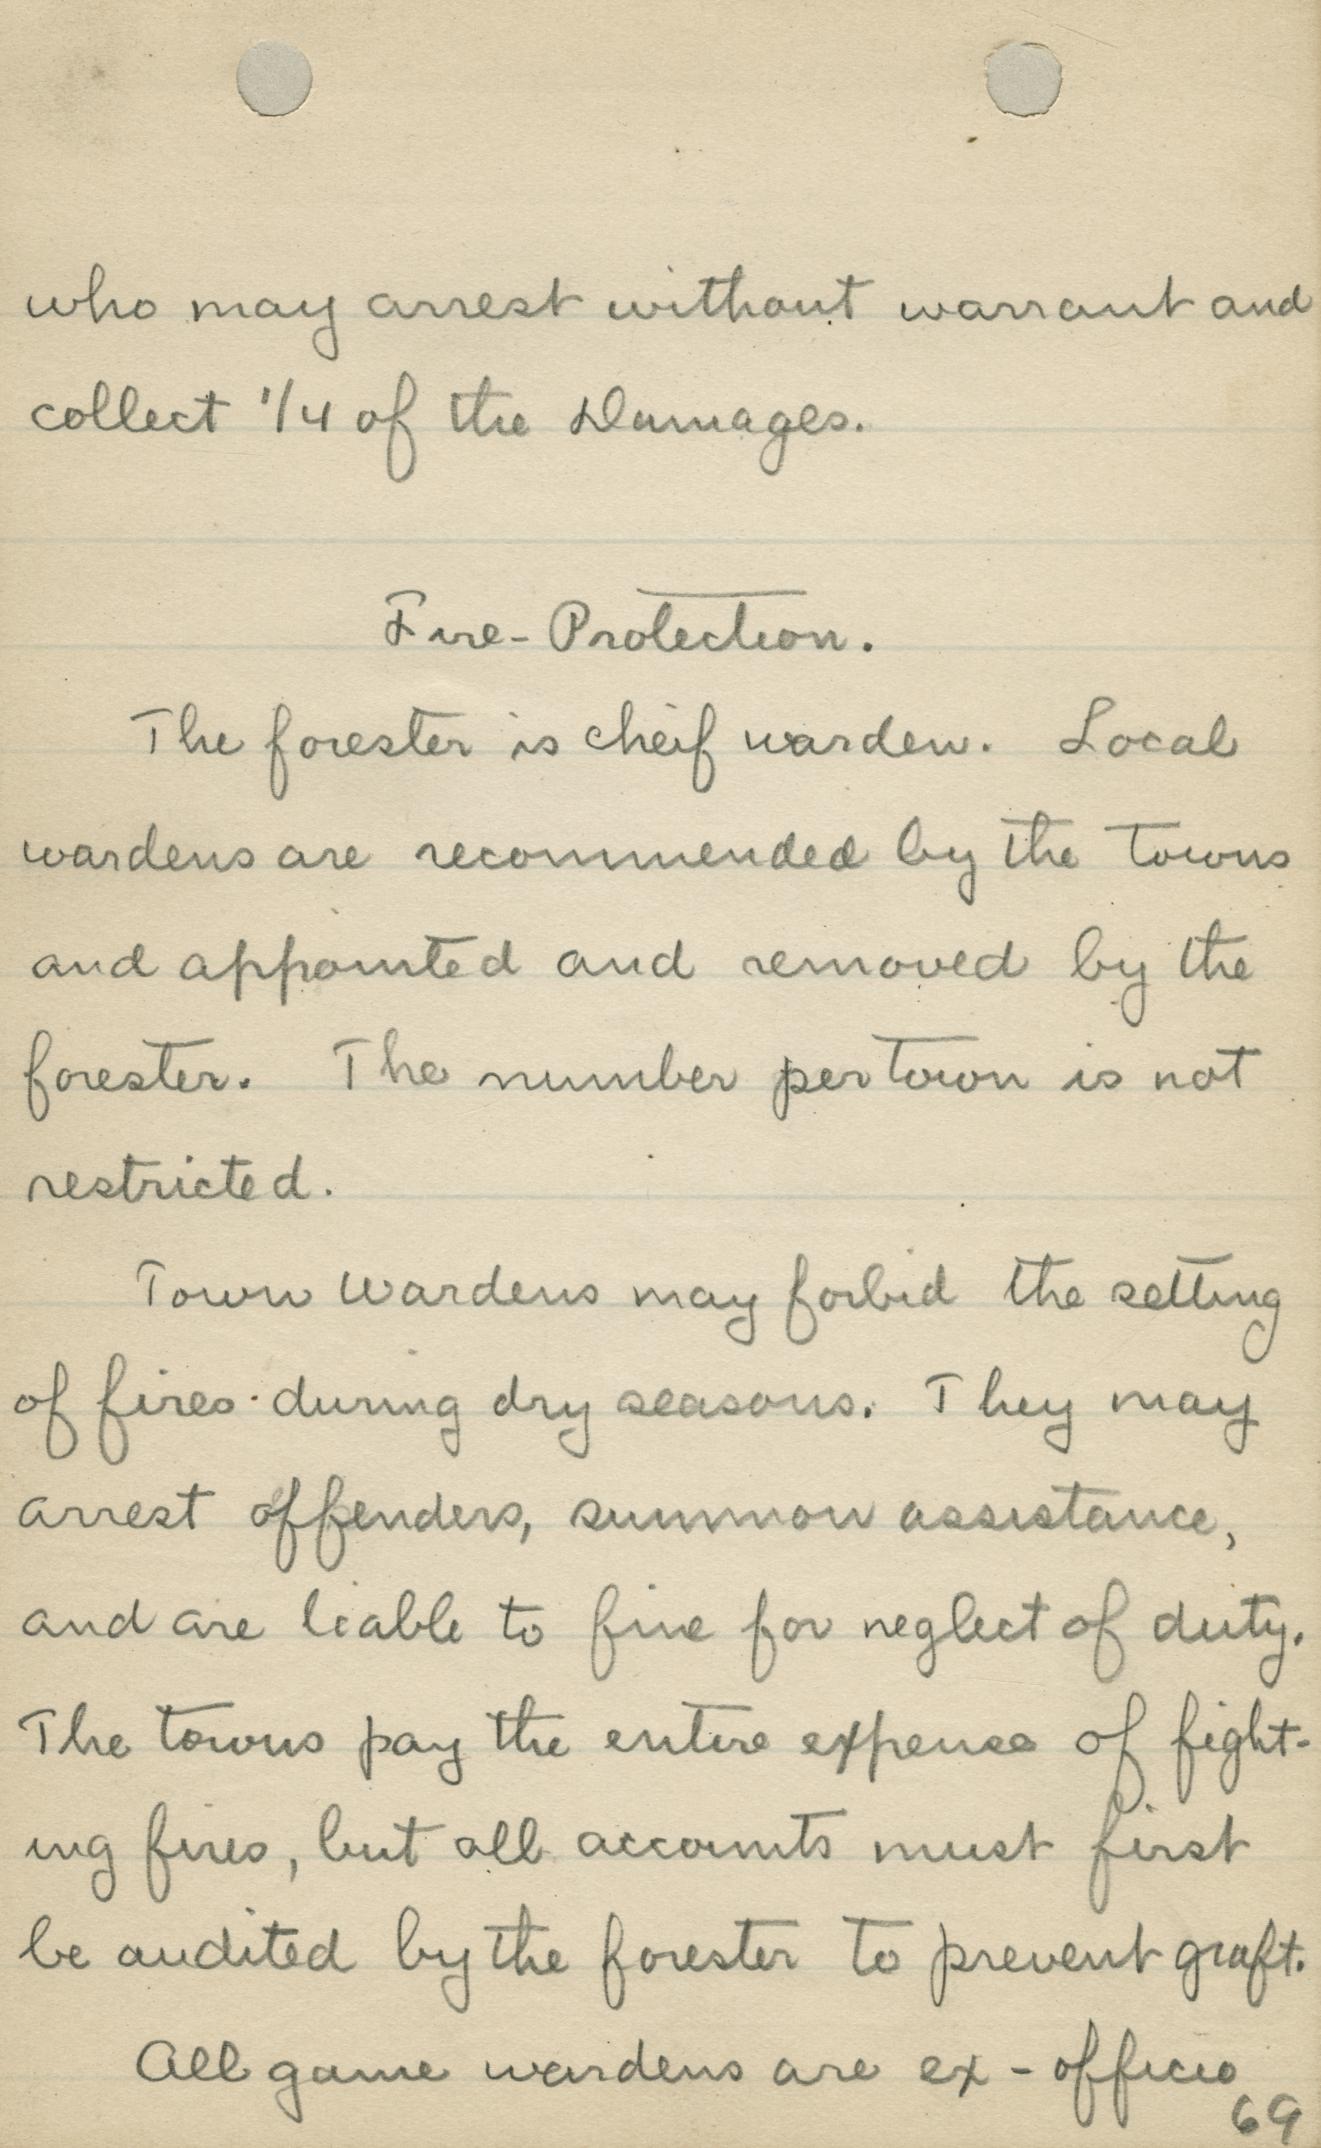 who may arrest without warrant and
collect 1/4 of the Damages.
Fire-Protection.
The forester is cheif warden. Local
wardens are recommended by the towns
and appointed and removed by the
forester. The number per town is not
restricted.
Town Wardens may forbid the setting
of fires during dry seasons. They may
arrest offenders, summon assistance,
and are liable to fine for neglect of duty.
The towns pay the entire expense of fight-
ing fires, but all accounts must first
be audited by the forester to prevent graft.
All game wardens are ex-officio
69